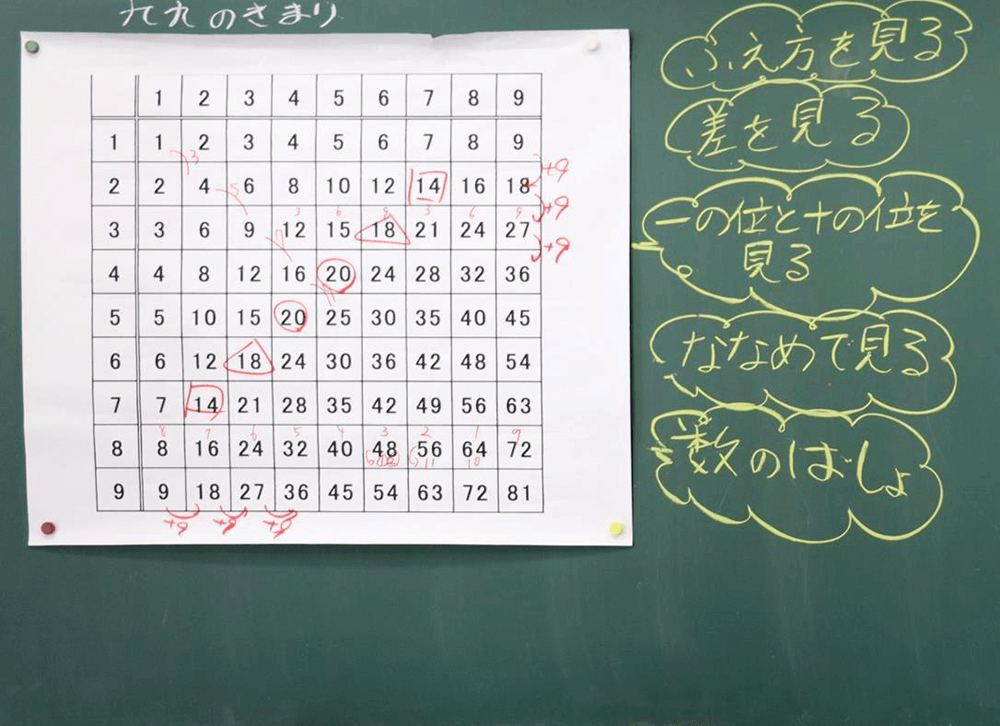 九九のきまり
1 2 3 4 5 6 7 8 9
1 1 2 3 4 5 6 7 8 9
3
2 2 4 6 8 10 12 14 16 18
+9
5
3 6 3 6 9
3 3 6 9 12 15 18 21 24 27
+9
+9
4 4 8 12 16 20 24 28 32 36
5 5 10 15 20 25 30 35 40 45
6 6 12 18 24 30 36 42 48 54
7 7 14 21 28 35 42 49 56 63
8 7 6 5 4 3 2 1 9
8 8 16 24 32 40 48 56 64 72
11 10
9 9 18 27 36 45 54 63 72 81
+9 +9 +9
ふえ方を見る
差を見る
一の位と十の位を
見る
ななめで見る
数のばしょ